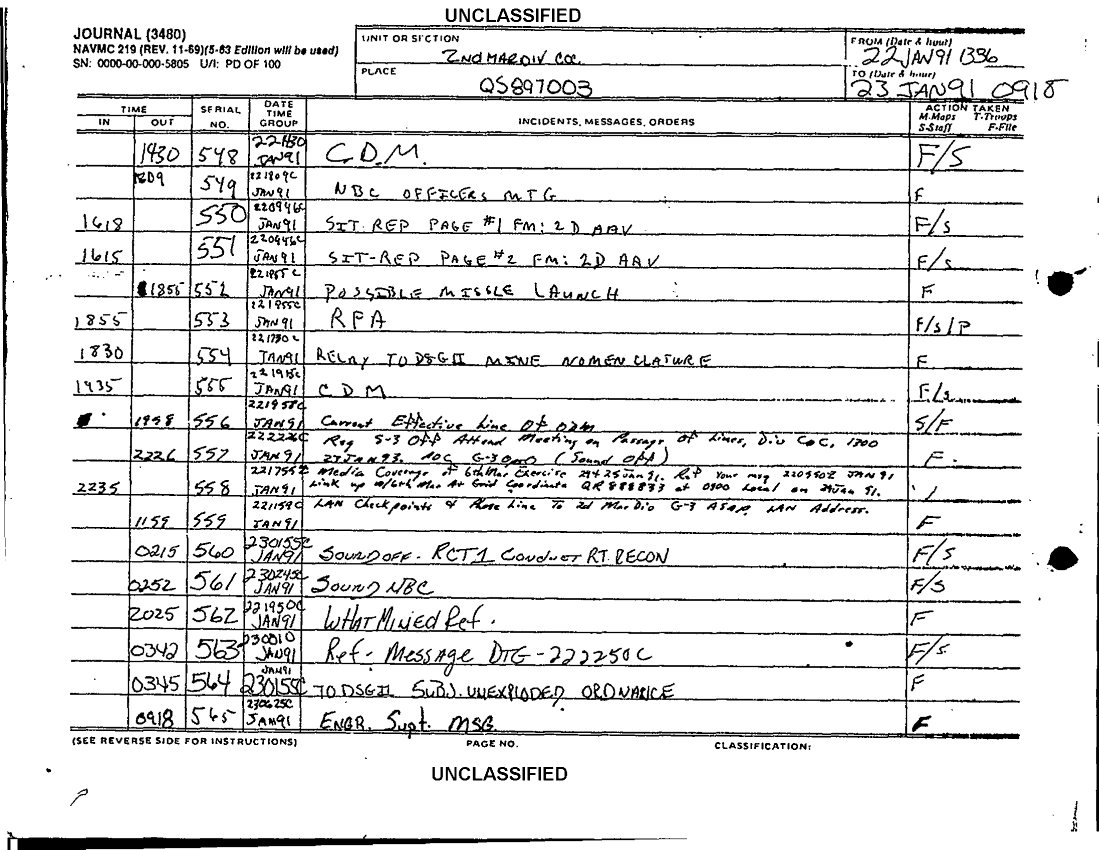 UNCLASSIFIED
JOURNAL (3480)
NAVMC 219 (REV. 11-69)(5-63 Edition will be used)
SN: 0000-00-000-5805 U/I: PD OF 100
UNIT OR SECTION
2ND MARDIV COC
PLACE
QS897003
FROM (Date & hour)
22 JAN 91 1336
TO (Date & hour)
23 JAN 91 0918
TIME IN OUT SERIAL NO. DATE TIME GROUP INCIDENTS, MESSAGES, ORDERS ACTION TAKEN M-Maps T-Troops S-Staff F-File
1430 548 221430 JAN91 C.D.M. F/S
1809 549 221809C JAN91 NBC OFFICERS MTG F
1618 550 220946C JAN91 SIT REP PAGE #1 FM: 2D AAV F/S
1615 551 220946C JAN91 SIT-REP PAGE #2 FM: 2D AAV F/S
1855 552 221855C JAN91 POSSIBLE MISSLE LAUNCH F
1855 553 221855C JAN91 RFA F/S/P
1830 554 221730C JAN91 RELAY TO DSGII MINE NOMENCLATURE F
1935 555 221915C JAN91 C D M F/S
1958 556 221958C JAN91 Current Effective Line Of S/F
2226 557 222226C JAN91 Req S-3 Off Attend Meeting on Passage Of Lines, Div COC, 1300
27 JAN 93. POC G-3 (Sound Off) F.
2235 558 221755Z JAN91 Media Coverage of 6th Mar Exercise 24 & 25 Jan 91. Ref Your msg 220550Z JAN 91
Link up w/6th Mar At Grid Coordinate QR888833 at 0900 Local on 24 Jan 91.
1159 559 221159C JAN91 LAN Checkpoints & Phase Line To 2d Mar Div G-3 ASAP, LAN Address. F
0215 560 230155C JAN91 SOUND OFF - RCT1 CONDUCT RT. RECON F/S
0252 561 230245C JAN91 SOUND NBC F/S
2025 562 221950C JAN91 WHAT MINED Ref. F
0342 563 230010 JAN91 Ref - Message DTG - 222250C F/S
0345 564 JAN91 230155C TO DSGII SUBJ. UNEXPLODED ORDNANCE F
0918 565 230625C JAN91 ENGR. Supt. MSG. F
(SEE REVERSE SIDE FOR INSTRUCTIONS) PAGE NO. CLASSIFICATION:
UNCLASSIFIED